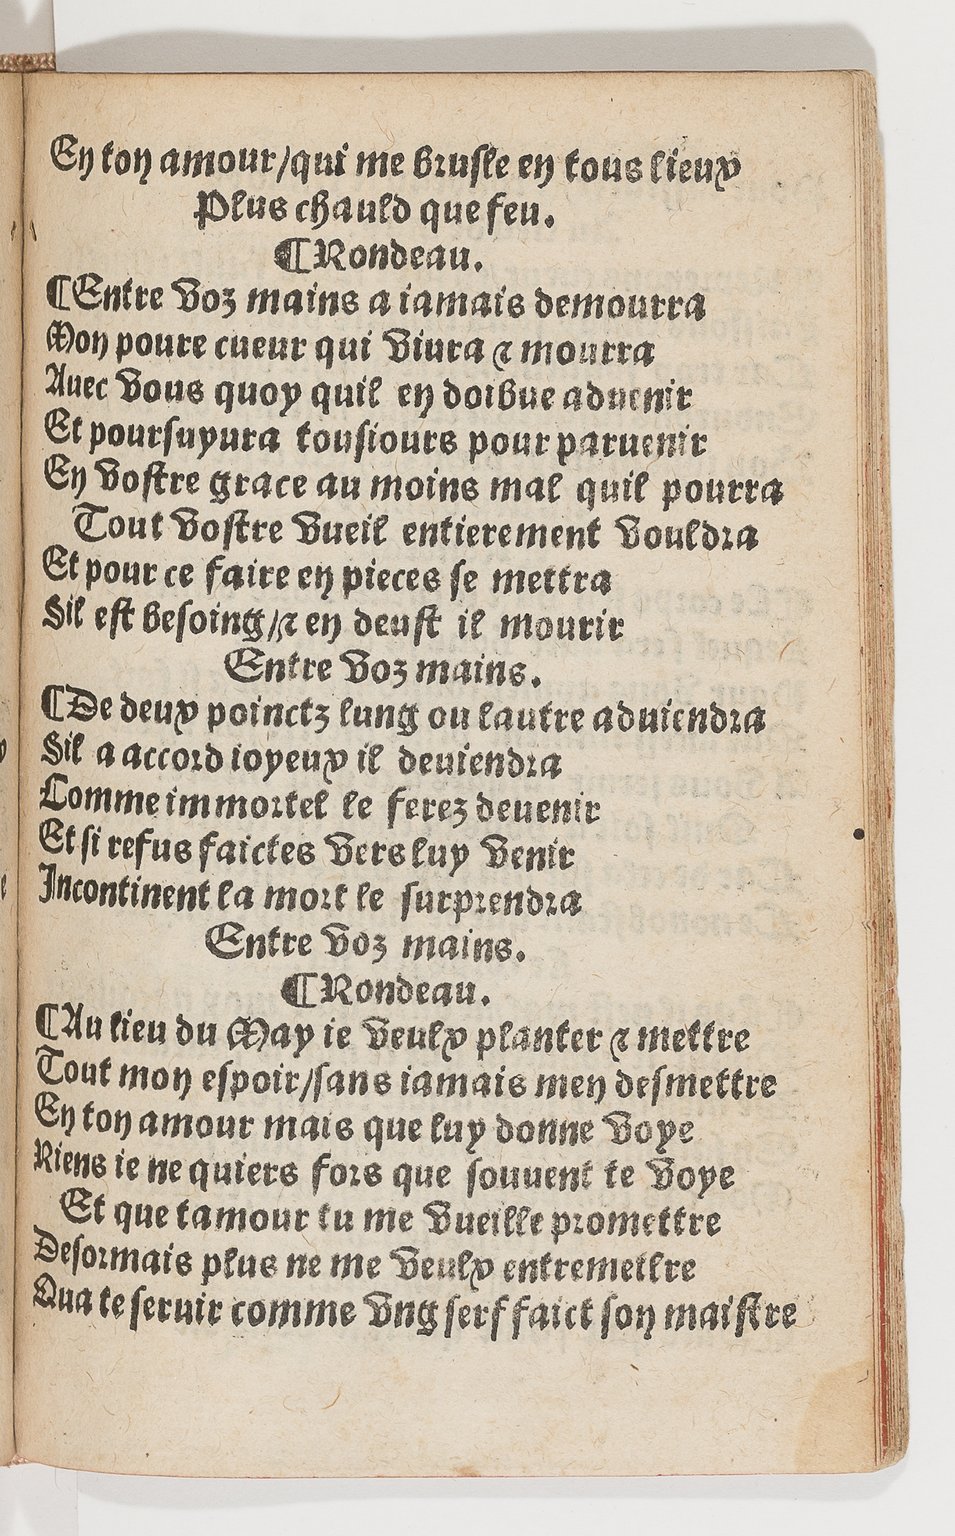 En ton amour/qui me brusle en tous lieux
Plus chauld que feu.
¶Rondeau.
¶Entre voz mains a iamais demourra
Mon poure cueur qui viura ⁊ mourra
Auec vous quoy quil en doibue aduenir
Et poursuyura tousiours pour paruenir
En vostre grace au moins mal quil pourra
Tout vostre vueil entierement vouldra
Et pour ce faire en pieces se mettra
Sil est besoing/⁊ en deust il mourir
Entre voz mains.
¶De deux poinctz lung ou lautre aduiendra
Sil a accord ioyeux il deuiendra
Comme immortel le ferez deuenir
Et si refus faictes vers luy venir
Incontinent la mort le surprendra
Entre voz mains.
¶Rondeau.
¶Au lieu du May ie veulx planter ⁊ mettre
Tout mon espoir/sans iamais men desmettre
En ton amour mais que luy donne voye
Riens ie ne quiers fors que souuent te voye
Et que tamour tu me vueille promettre
Desormais plus ne me veulx entremettre
Qua te seruir comme vng serf faict son maistre